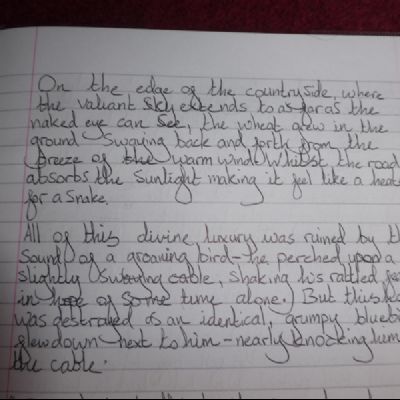 On the edge of the countryside, where
the valiant sky extends to as far as the
naked eye can see, the wheat grew in the
ground swaying back and forth from the
breeze of the warm wind. Whilst the road
absorbs the sunlight making it feel like a heat
for a snake.
All of this divine luxury was ruined by th
sound of a groaning bird-he perched upon a
slightly swaying cable, shaking his rattled fea
in hope of some time alone. But this
was destroyed as an identical, grumpy bluebi
flew down next to him-nearly knocking him
the cable.